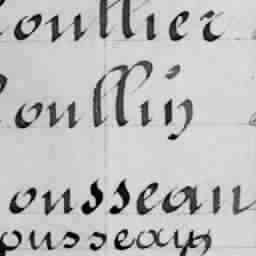 oullier
oullin
ousseau
ousseaux